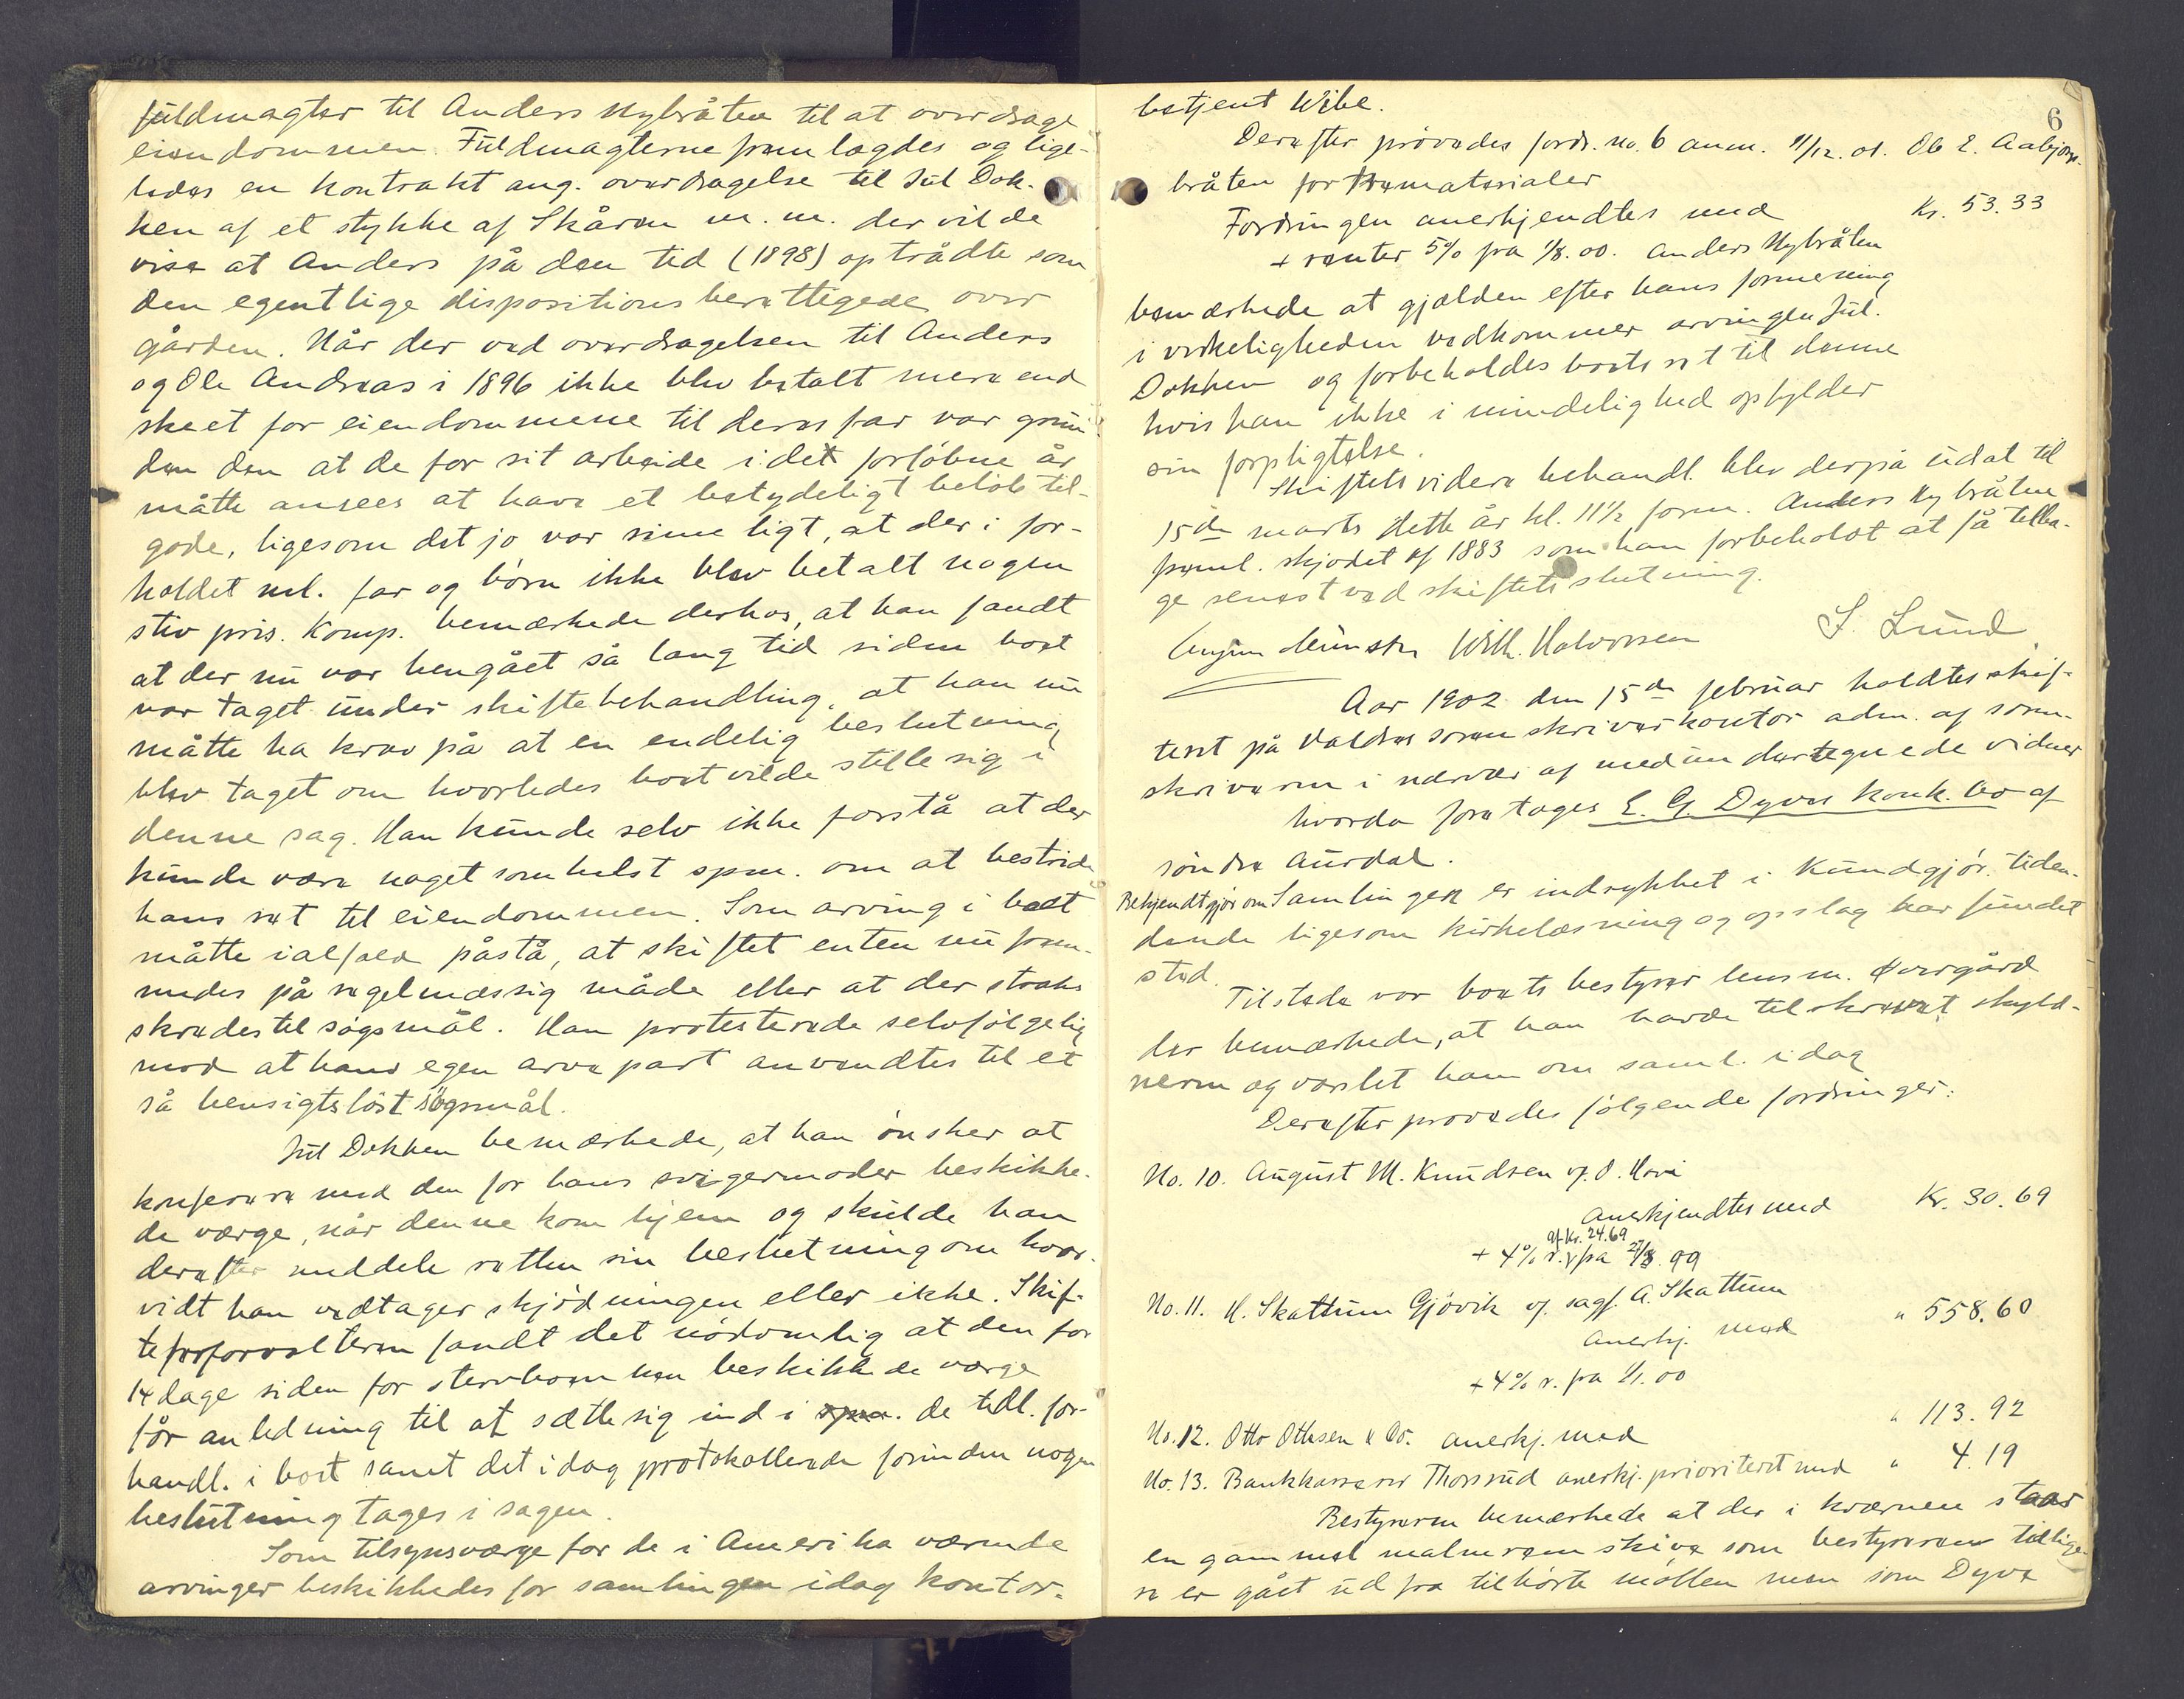 fuldmagter til Anders Nybråten til at overdrage
eiendommen. Fuldmagterne fremlagdes og lige-
ledes en kontrakt ang. overdragelse til Jul Dok-
ken af et stykke af Skåren m. m. der vilde
vise at Anders på den tid (1898) optrådte som
den egentlige dispositionsberettigede over
gården. Når der ved overdragelsen til Anders
og Ole Andreas i 1896 ikke blev betalt mere end
skeet for eiendommene til deres far var grun-
den den at de for sit arbeide i det forløbne år
måtte ansees at have et betydeligt beløb til-
gode, ligesom det jo var rimeligt, at der i for-
holdet ml. far og børn ikke blev betalt nogen
stiv pris. Komp. bemærkede derhos, at han fandt
at der nu var hengået så lang tid siden boet
var taget under skiftebehandling, at han nu
måtte ha krav på at en endelig beslutning
blev taget om hvorledes boet vilde stille sig i
denne sag. Han kunde selv ikke forstå at der
kunde være noget somhelst spm. om at bestride
hans ret til eiendommen. Som arving i boet
måtte ialfald påstå, at skiftet enten nu frem-
medes på regelmæssig måde eller at der straks
skredes til søgsmål. Han protesterede selvfølgelig
mod at hans egen arvepart anvendtes til et
så hensigtsløst søgsmål.
Jul Dokken bemærkede, at han ønsker at
konferere med den for hans svigermoder beskikke-
de værge, når denne kom hjem og skulde han
derefter meddele retten sin beslutning om hvor-
vidt han vedtager skjødningen eller ikke. Skif-
teforvalteren fandt det nødvendig at den for
14 dage siden for stervboenken beskikkede værge
får anledning til at sætte sig ind i de tidl. for-
handl. i boet samt det idag protokollerede forinden nogen
beslutning tages i sagen.
Som tilsynsværge for de i Amerika værende
arvinger beskikkedes for samlingen idag kontor-
6
betjent Wibe.
Derefter prøvedes fordr. no. 6 anm. 11/12. 01. Ole E. Aabjørs-
bråten for træmaterialer
Fordringen anerkjendtes med Kr. 53.33
+ renter 5% fra 1/8. 00. Anders Nybråten
bemærkede at gjælden efter hans formening
i virkeligheden vedkommer arvingen Jul.
Dokken og forbeholdes boets ret til denne
hvis han ikke i mindelighed opfylder
sin forpligtelse.
Skiftets videre behandl. blev derpå udsat til
15de marts dette år kl. 11 1/2 form. Anders Nybråten
freml. skjødet af 1883 som han forbeholdt at få tilba-
ge senest ved skiftets slutning.
Münster Wilh. Halvorsen S. Lund
Aar 1902 den 15de februar holdtes skif-
teret på Valdres sorenskriverkontor adm. af soren-
skriveren i nærvær af medundertegnede vidner
hvorda foretoges E. G. Dyves konk. bo af
søndre Aurdal.
Bekjendtgjør om Samlingen er indrykket i Kundgjør. tiden-
dende ligesom kirkelæsning og opslag har fundet
sted.
Tilstede var boets bestyrer lensm.
der bemærkede, at han havde tilskrevet skyld-
neren og varslet ham om saml. idag
Derefter prøvedes følgende fordringer:
No. 10. August M. Knudsen v. O. Hovi
Anerkjendtes med Kr. 30.69
af Kr. 24.69
+ 4% r. fra 27/8. 99
No. 11. H. Skattum Gjøvik v. sagf. A. Skattum
Anerkj. med " 558.60
+ 4% r. fra 1/1. 00
No. 12. Otto Ottesen & Co. anerkj. med " 113.92
No. 13. Bankkasserer Thorsrud anerkj. prioriteret med " 4.19
Bestyreren bemærkede at der i kværnen staar
en gammel malmremskive som bestyreren tidlige-
re er gået ud fra tilhørte møllen men som Dyve